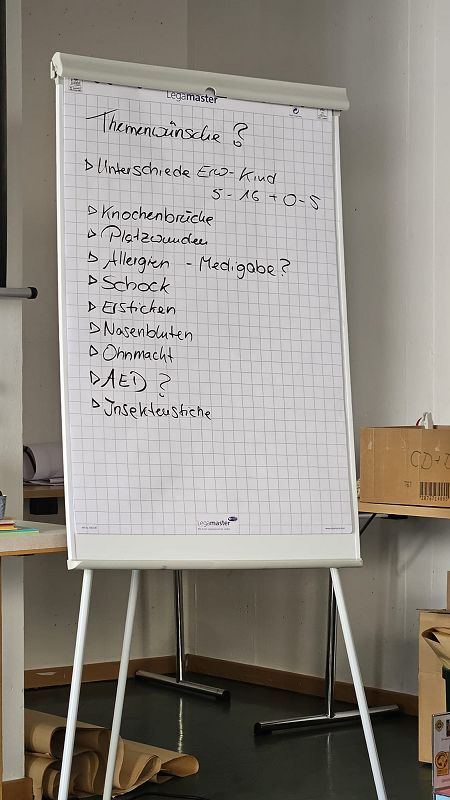 Legamaster
Themenwünsche?
▷ Unterschiede Erw-Kind
5-16 + 0-5
▷ Knochenbrüche
▷ Platzwunden
▷ Allergien - Medigabe?
▷ Schock
▷ Ersticken
▷ Nasenbluten
▷ Ohnmacht
▷ AED ?
▷ Insektenstiche
Legamaster
CD+D